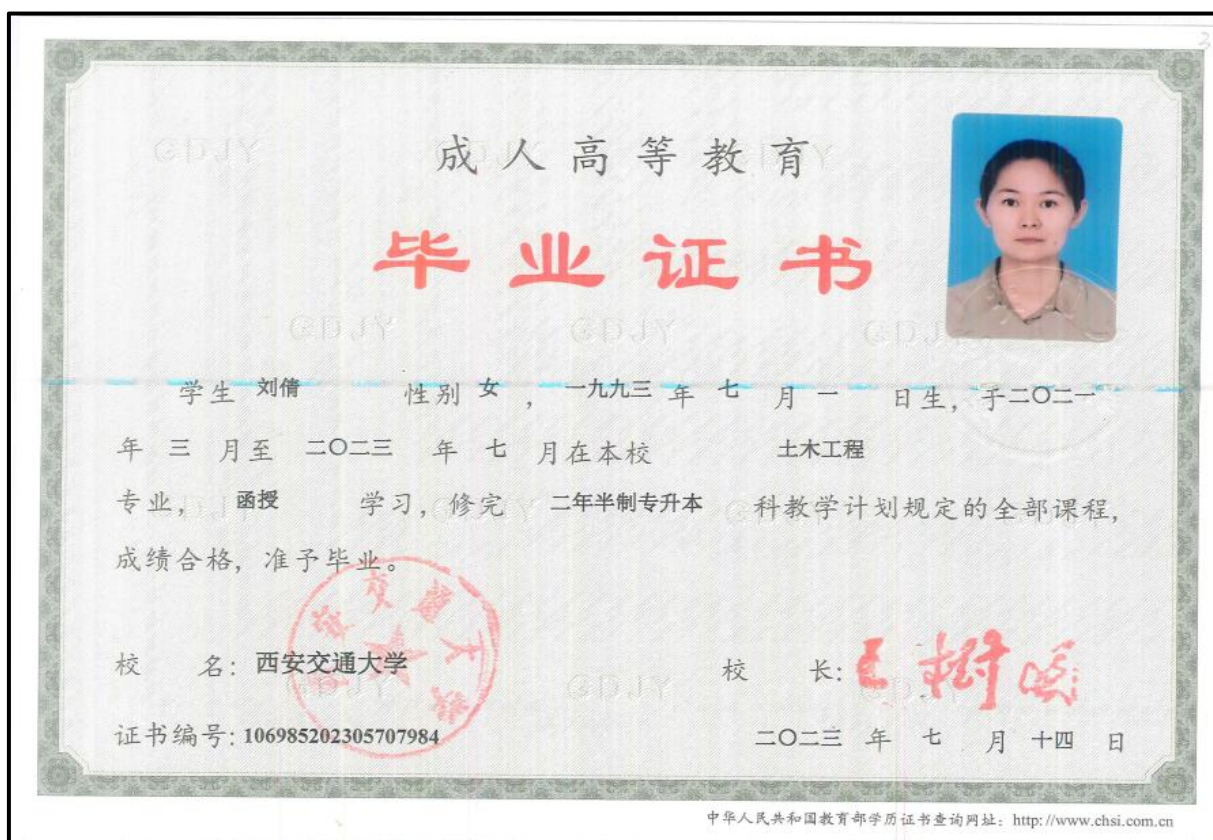 成人高等教育
毕业证书
学生 刘倩 性别 女 , 一九九三 年 七 月 一 日生, 于二〇二一
年 三 月至 二〇二三 年 七 月在本校 土木工程
专业, 函授 学习, 修完 二年半制专升本 科教学计划规定的全部课程,
成绩合格, 准予毕业。
西安交通大学
校 名: 西安交通大学 校 长: 王树国
证书编号: 106985202305707984 二〇二三 年 七 月 十四 日
中华人民共和国教育部学历证书查询网址: http://www.chsi.com.cn